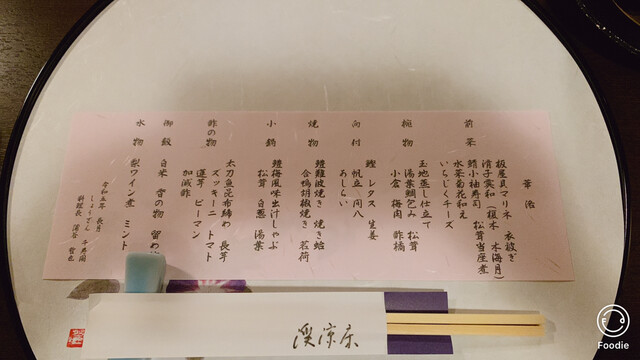 前菜
板屋貝マリネ 衣被ぎ
清子霙和え(根木 木海月)
鯖小袖寿司 松茸当座煮
水菜菊花和え
いちじくチーズ
椀物
玉地蒸し仕立て
湯葉鯛包み 松茸
小倉 梅肉 酢橘
向付
鰹 レタス 生姜
帆立 間八
あしらい
焼物
鱧難波焼き 焼き蛤
合鴨胡椒焼き 茗荷
小鍋
鱧梅風味出汁しゃぶ
松茸 白葱 湯葉
酢の物
太刀魚昆布締め 長芋
ズッキーニ トマト
蓮芋 ピーマン
加減酢
御飯
白米 香の物 留め
水物
梨ワイン煮 ミント
令和五年 長月
しょうでん
料理長
渓涼床
Foodie